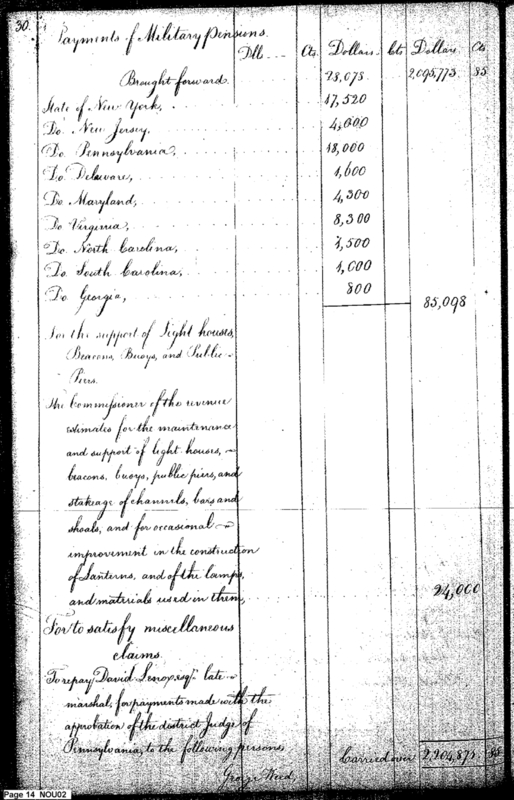 30.
Payments of Military Pensions.
Dlls Cts. Dollars. Cts Dollars. Cts
Brought forward. 28,078 2,095,773 85
State of New York, 17,520
Do. New Jersey, 4,000
Do. Pennsylvania, 18,000
Do. Delaware, 1,600
Do. Maryland, 4,300
Do. Virginia, 8,300
Do. North Carolina, 1,500
Do. South Carolina, 1,000
Do. Georgia, 800
85,098
For the support of Light houses,
Beacons, Buoys, and Public
Piers.
The Commissioner of the revenue
estimates for the maintenance
and support of light houses,
beacons, buoys, public piers, and
stakeage of channels, bars and
shoals, and for occasional
improvement in the construction
of Lanterns, and of the lamps,
and materials used in them, 24,000
For to satisfy miscellaneous
claims.
To repay David Lenox, esqr. late
marshal, for payments made with the
approbation of the district Judge of
Pennsylvania, to the following persons,
Carried over 2,204,875 85
George Weed,
Page 14 NOU02